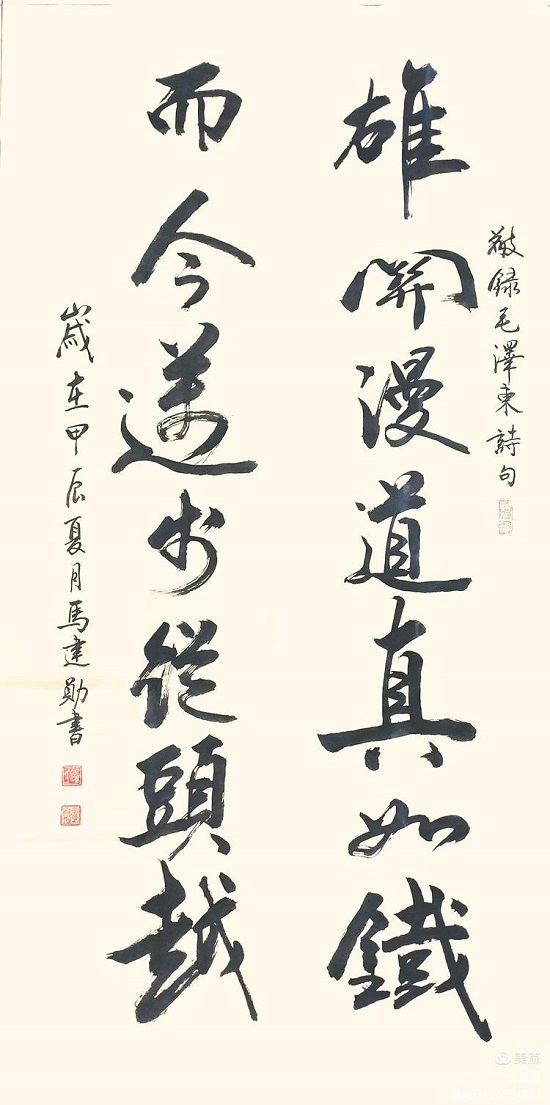 敬錄毛澤東詩句
雄關漫道真如鐵
而今邁步從頭越
歲在甲辰夏月馬建勛書
美篇